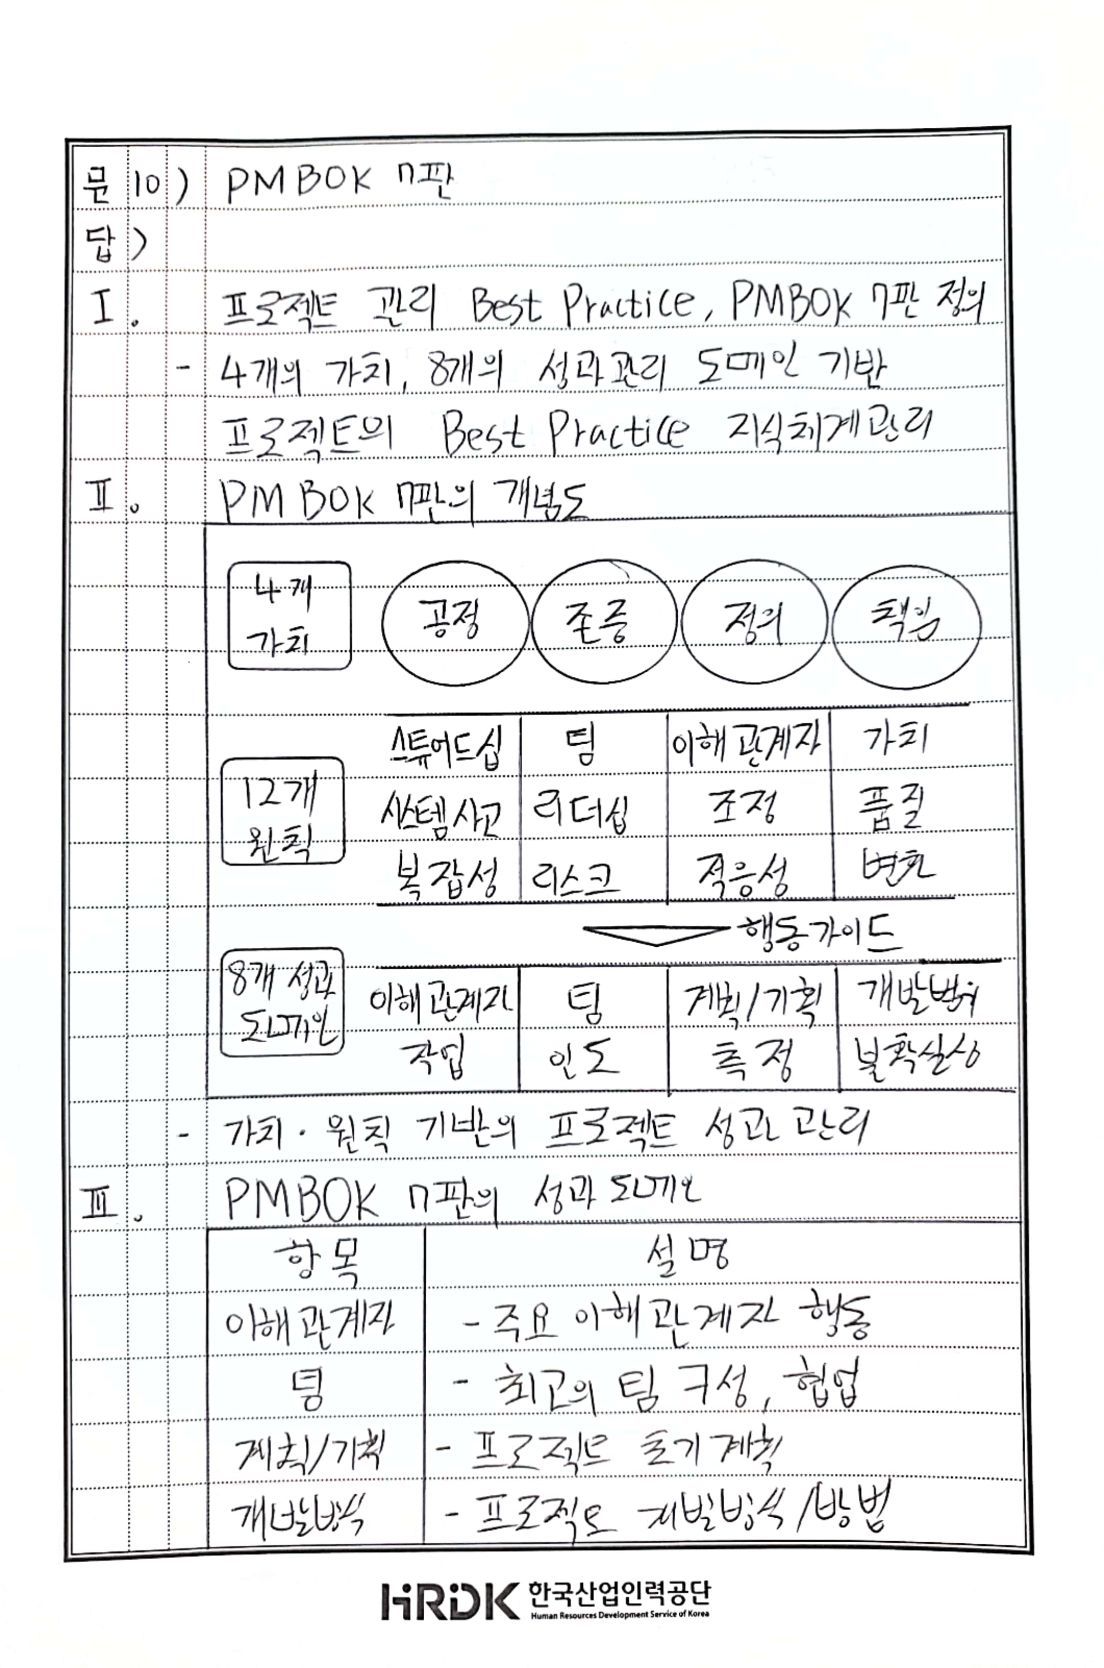 문 10) PMBOK 7판
답)
I. 프로젝트 관리 Best Practice, PMBOK 7판 정의
- 4개의 가치, 8개의 성과관리 도메인 기반
프로젝트의 Best Practice 지식체계관리
II. PMBOK 7판의 개념도
4개 가치 공정 존중 정의 책임
스튜어드십 팀 이해관계자 가치
12개 시스템사고 리더십 조정 품질
원칙 복잡성 리스크 적응성 변화
행동가이드
8개 성과 이해관계자 팀 계획/기획 개발방식
도메인 작업 인도 측정 불확실성
- 가치·원칙 기반의 프로젝트 성과 관리
III. PMBOK 7판의 성과 도메인
항목 설명
이해관계자 - 주요 이해관계자 행동
팀 - 최고의 팀 구성, 협업
계획/기획 - 프로젝트 초기계획
개발방식 - 프로젝트 개발방식/방법
HRDK 한국산업인력공단
Human Resources Development Service of Korea